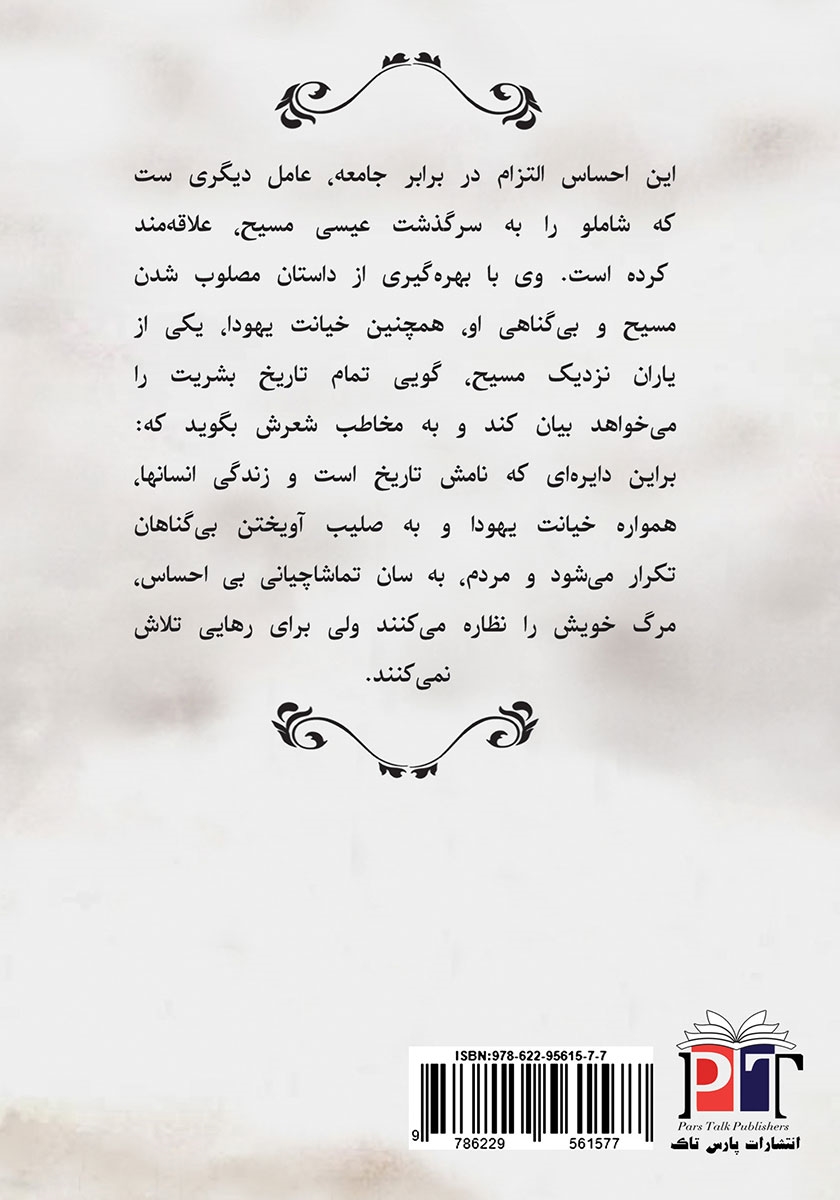 این احساس التزام در برابر جامعه، عامل دیگری ست
که شاملو را به سرگذشت عیسی مسیح، علاقه‌مند
کرده است. وی با بهره‌گیری از داستان مصلوب شدن
مسیح و بی‌گناهی او، همچنین خیانت یهودا، یکی از
یاران نزدیک مسیح، گویی تمام تاریخ بشریت را
می‌خواهد بیان کند و به مخاطب شعرش بگوید که:
براین دایره‌ای که نامش تاریخ است و زندگی انسانها،
همواره خیانت یهودا و به صلیب آویختن بی‌گناهان
تکرار می‌شود و مردم، به سان تماشاچیانی بی احساس،
مرگ خویش را نظاره می‌کنند ولی برای رهایی تلاش
نمی‌کنند.
ISBN:978-622-95615-7-7
9 786229 561577
PT
Pars Talk Publishers
انتشارات پارس تاک